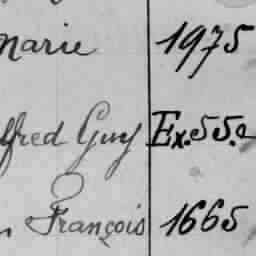 Marie 1975
lfred Guy Ex.55.e
François 1665